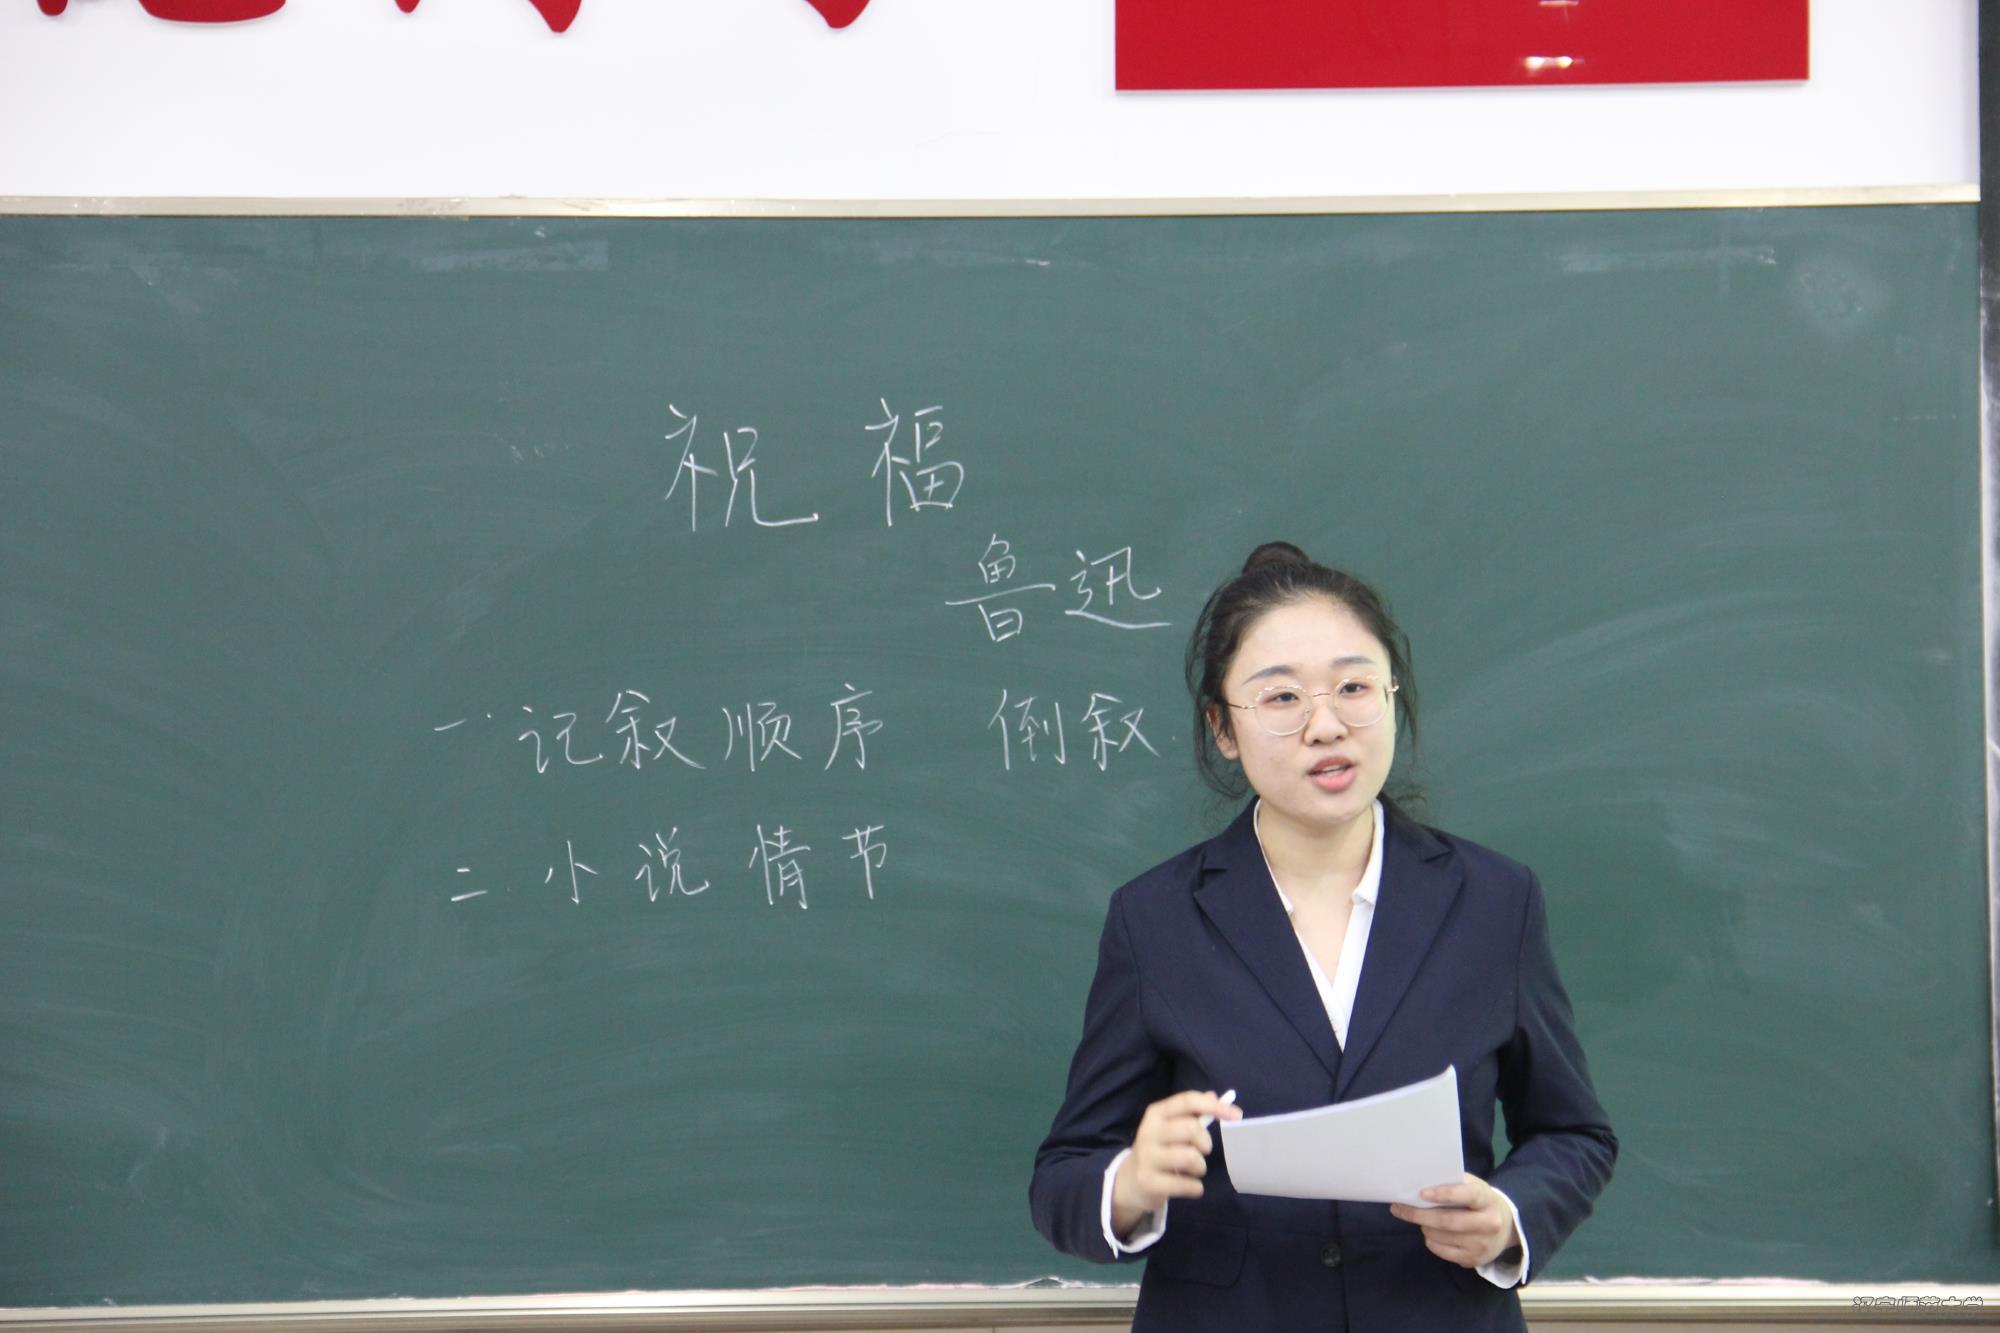 祝福
鲁迅
一.记叙顺序 倒叙
二.小说情节